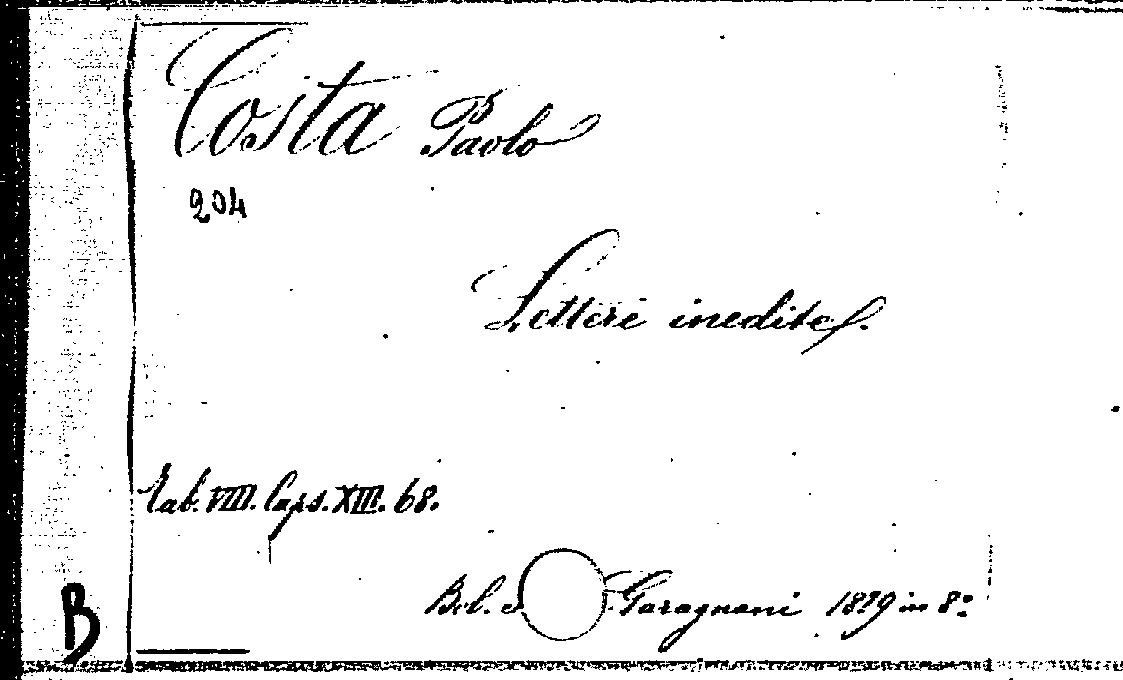 Costa Paolo
204
Lettere inedite.
Tab. VIII. Caps. XIII. 68.
Bol. Garagnani 1879 in 8°
B